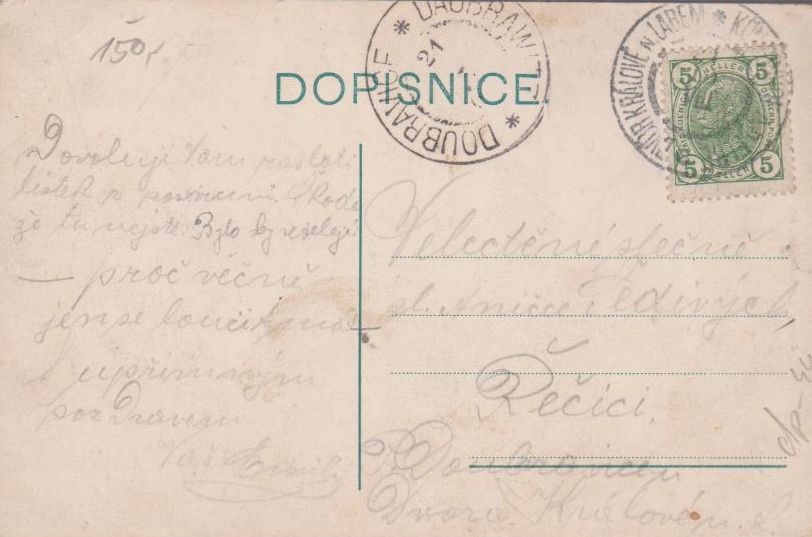 150,-
DOPISNICE.
DAUBRAWITZ * DOUBRAVICE *
21
DVŮR KRÁLOVÉ n LABEM * KÖ
5 HELLER 5
5 HELLER 5
Dovoluji Vám zaslati
lístek z posvícení. Škoda
že tu nejste. Bylo by veseleji
— proč věčně
jen se loučit má —
S upřímným
pozdravem
Váš Emil
Velectěné slečně
sl. Aničce Šedivých
Řečici.
P. Doubravicen
Dvora Králové n. L.